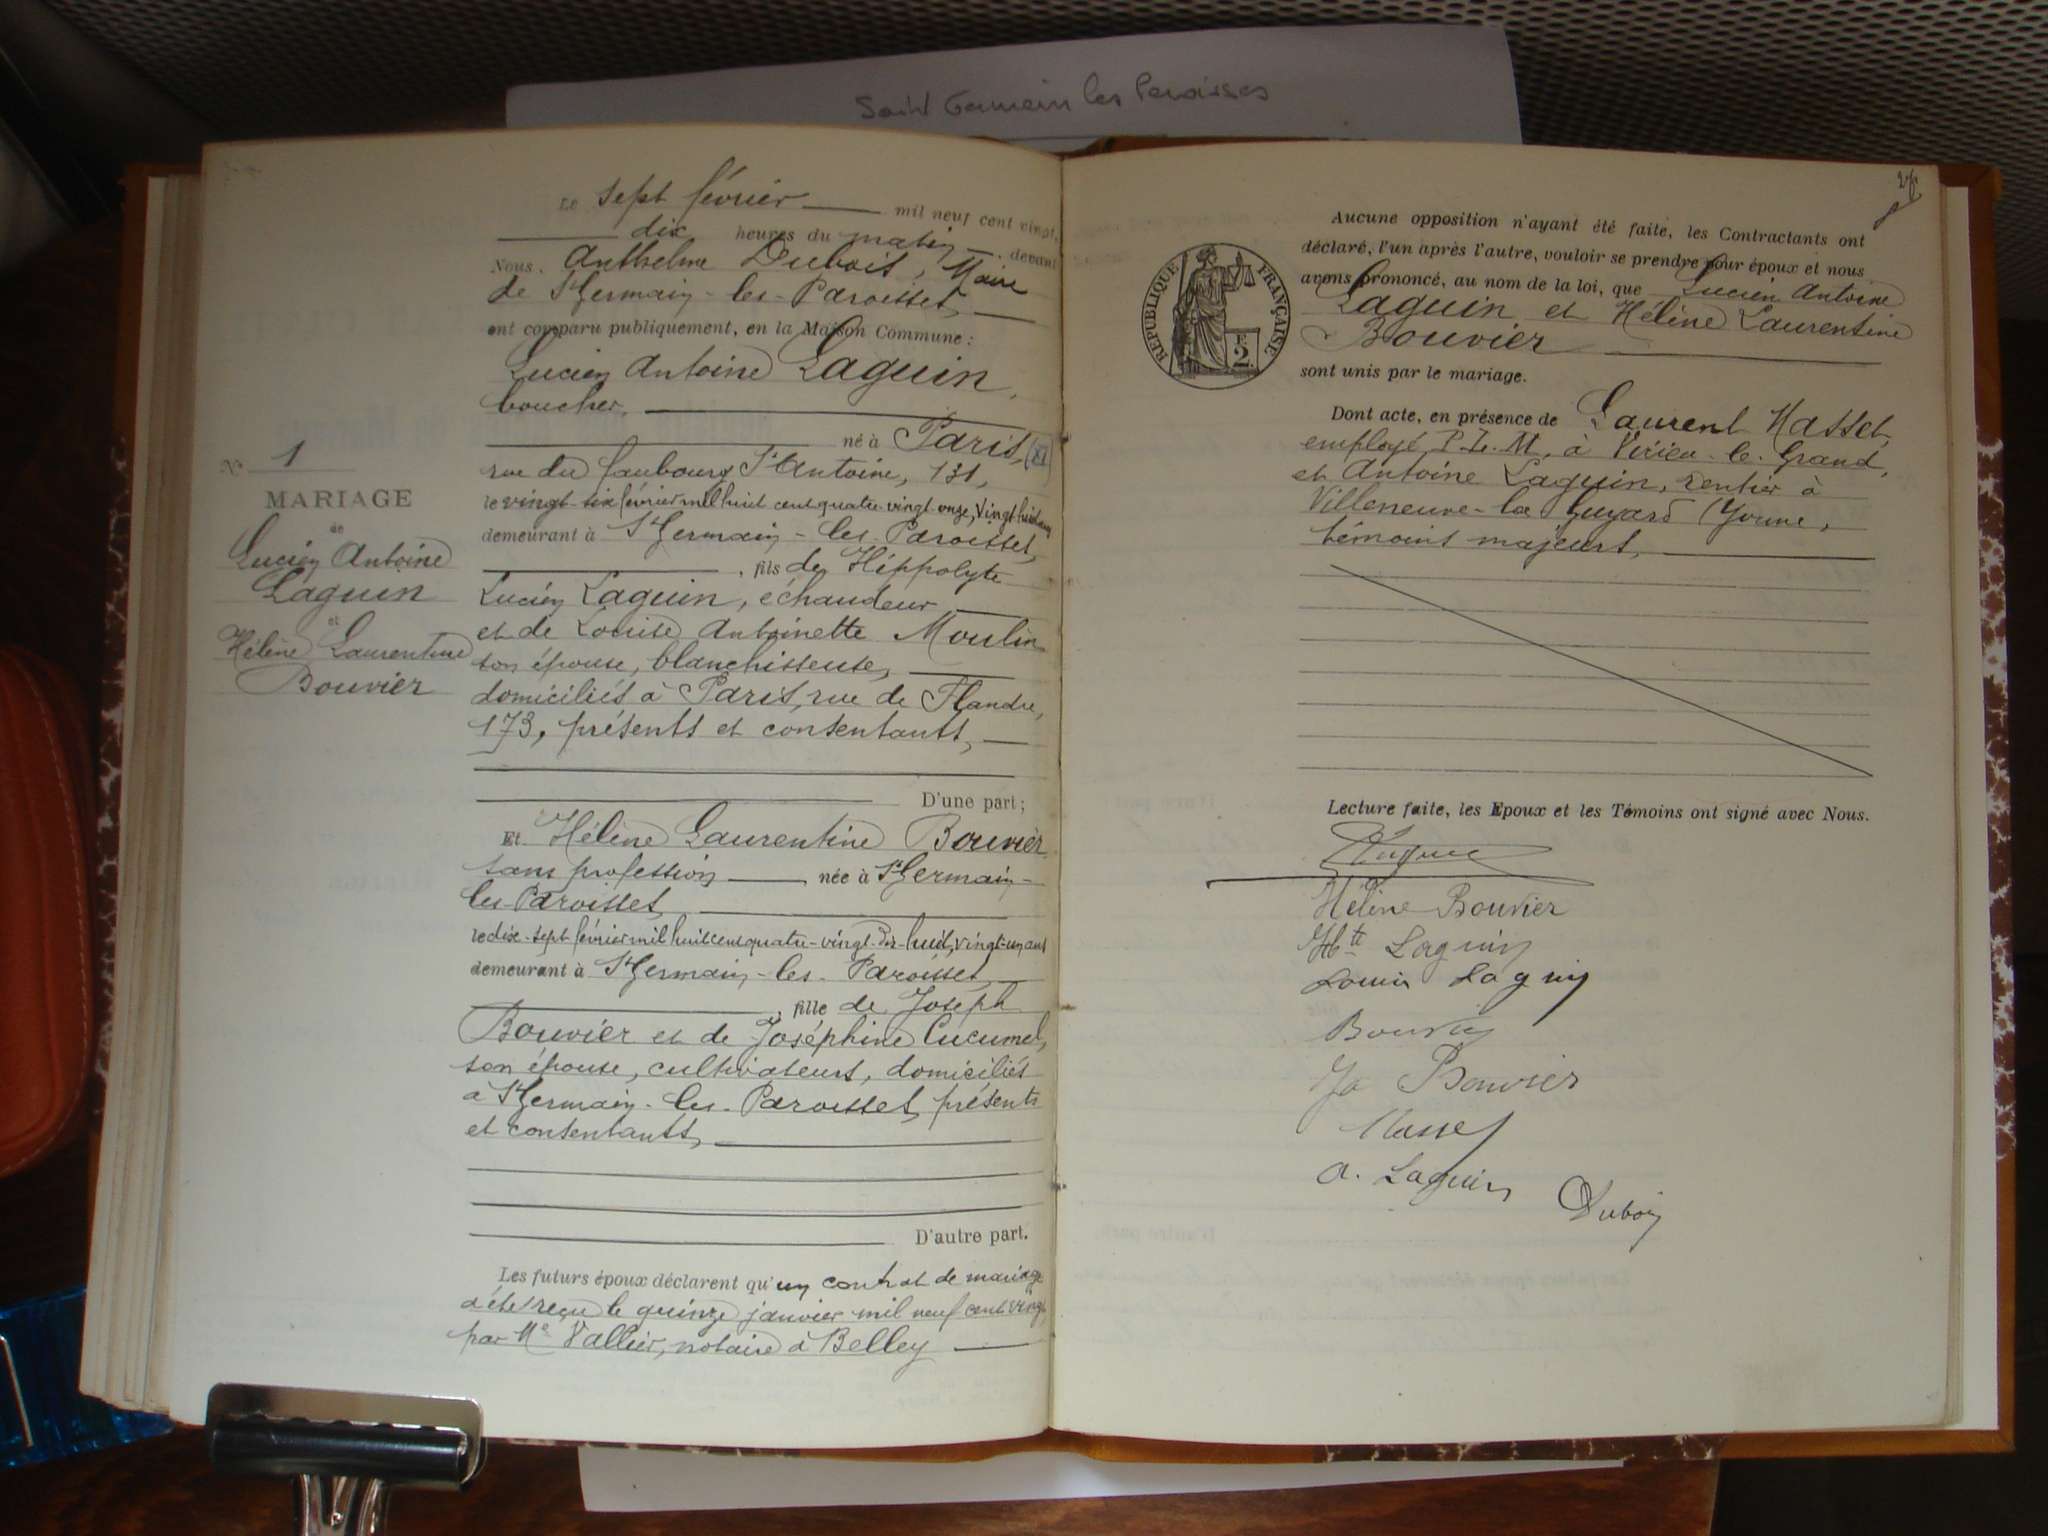 Saint Germain les Paroisses
Le sept février mil neuf cent vingt,
dix heures du matin, devant
Nous, Anthelme Dubois, Maire
de St Germain-les-Paroisses,
ont comparu publiquement, en la Maison Commune :
Lucien Antoine Laguin,
boucher,
né à Paris, (XI)
rue du faubourg St Antoine, 131,
le vingt-six février mil huit cent quatre-vingt-onze, vingt-huit ans
demeurant à St Germain-les-Paroisses,
, fils de Hippolyte
Lucien Laguin, échaudeur
et de Louise Antoinette Moulin
son épouse, blanchisseuse,
domiciliés à Paris, rue de Flandre,
173, présents et consentants,
D'une part ;
Et Hélène Laurentine Bouvier,
sans profession née à St Germain-
les-Paroisses,
le dix-sept février mil huit cent quatre-vingt-dix-huit, vingt-un ans
demeurant à St Germain-les-Paroisses,
, fille de Joseph
Bouvier et de Joséphine Cucumel,
son épouse, cultivateurs, domiciliés
à St Germain-les-Paroisses, présents
et consentants,
D'autre part.
Les futurs époux déclarent qu'un contrat de mariage
a été reçu le quinze janvier mil neuf cent vingt
par Me Vallier, notaire à Belley
No 1
MARIAGE
de
Lucien Antoine
Laguin
et
Hélène Laurentine
Bouvier
Aucune opposition n'ayant été faite, les Contractants ont
déclaré, l'un après l'autre, vouloir se prendre pour époux et nous
avons prononcé, au nom de la loi, que Lucien Antoine
Laguin et Hélène Laurentine
Bouvier
sont unis par le mariage.
RÉPUBLIQUE FRANÇAISE
E
2
Dont acte, en présence de Laurent Masset,
employé P.L.M. à Virieu-le-Grand,
et Antoine Laguin, rentier à
Villeneuve-la Guyard (Yonne,
témoins majeurs,
Lecture faite, les Epoux et les Témoins ont signé avec Nous.
Hélène Bouvier
Hte Laguin
Louise Laguin
Bouvier
Jo Bouvier
Masset
A. Laguin
Dubois